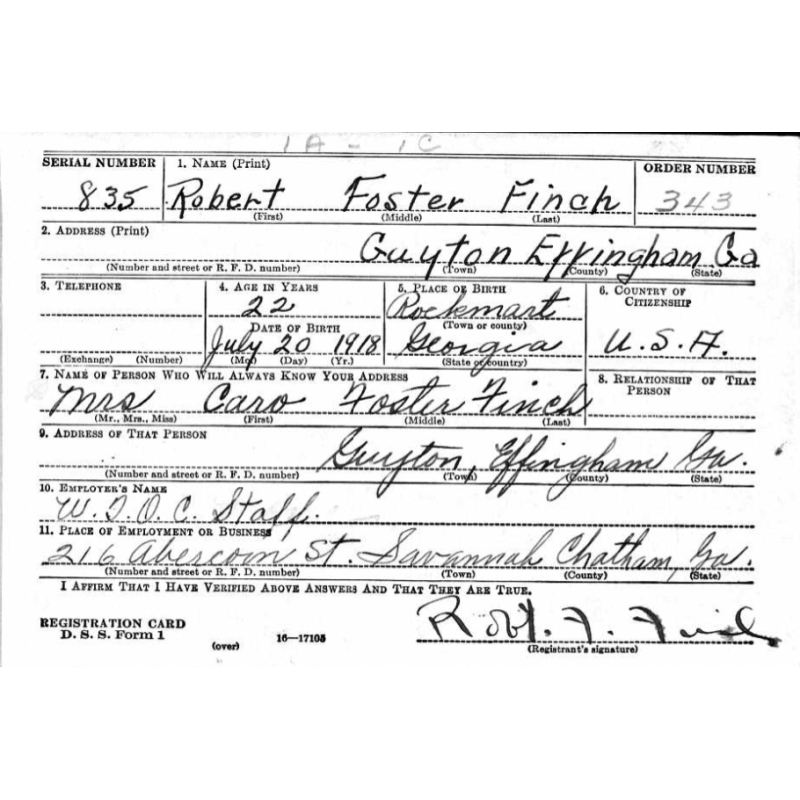 1A - 1C
SERIAL NUMBER 1. NAME (Print) ORDER NUMBER
835 Robert Foster Finch 343
(First) (Middle) (Last)
2. ADDRESS (Print)
Guyton Effingham Ga
(Number and street or R. F. D. number) (Town) (County) (State)
3. TELEPHONE 4. AGE IN YEARS 5. PLACE OF BIRTH 6. COUNTRY OF CITIZENSHIP
22 Rockmart
(Town or county)
DATE OF BIRTH
July 20 1918 Georgia U.S.A.
(Exchange) (Number) (Mo.) (Day) (Yr.) (State or country)
7. NAME OF PERSON WHO WILL ALWAYS KNOW YOUR ADDRESS 8. RELATIONSHIP OF THAT PERSON
Mrs Caro Foster Finch
(Mr., Mrs., Miss) (First) (Middle) (Last)
9. ADDRESS OF THAT PERSON
Guyton, Effingham Ga.
(Number and street or R. F. D. number) (Town) (County) (State)
10. EMPLOYER'S NAME
Staff.
11. PLACE OF EMPLOYMENT OR BUSINESS
216 Abercorn St. Savannah Chatham, Ga.
(Number and street or R. F. D. number) (Town) (County) (State)
I AFFIRM THAT I HAVE VERIFIED ABOVE ANSWERS AND THAT THEY ARE TRUE.
REGISTRATION CARD
D. S. S. Form 1 16—17105 Robt. F. Finch
(over) (Registrant's signature)